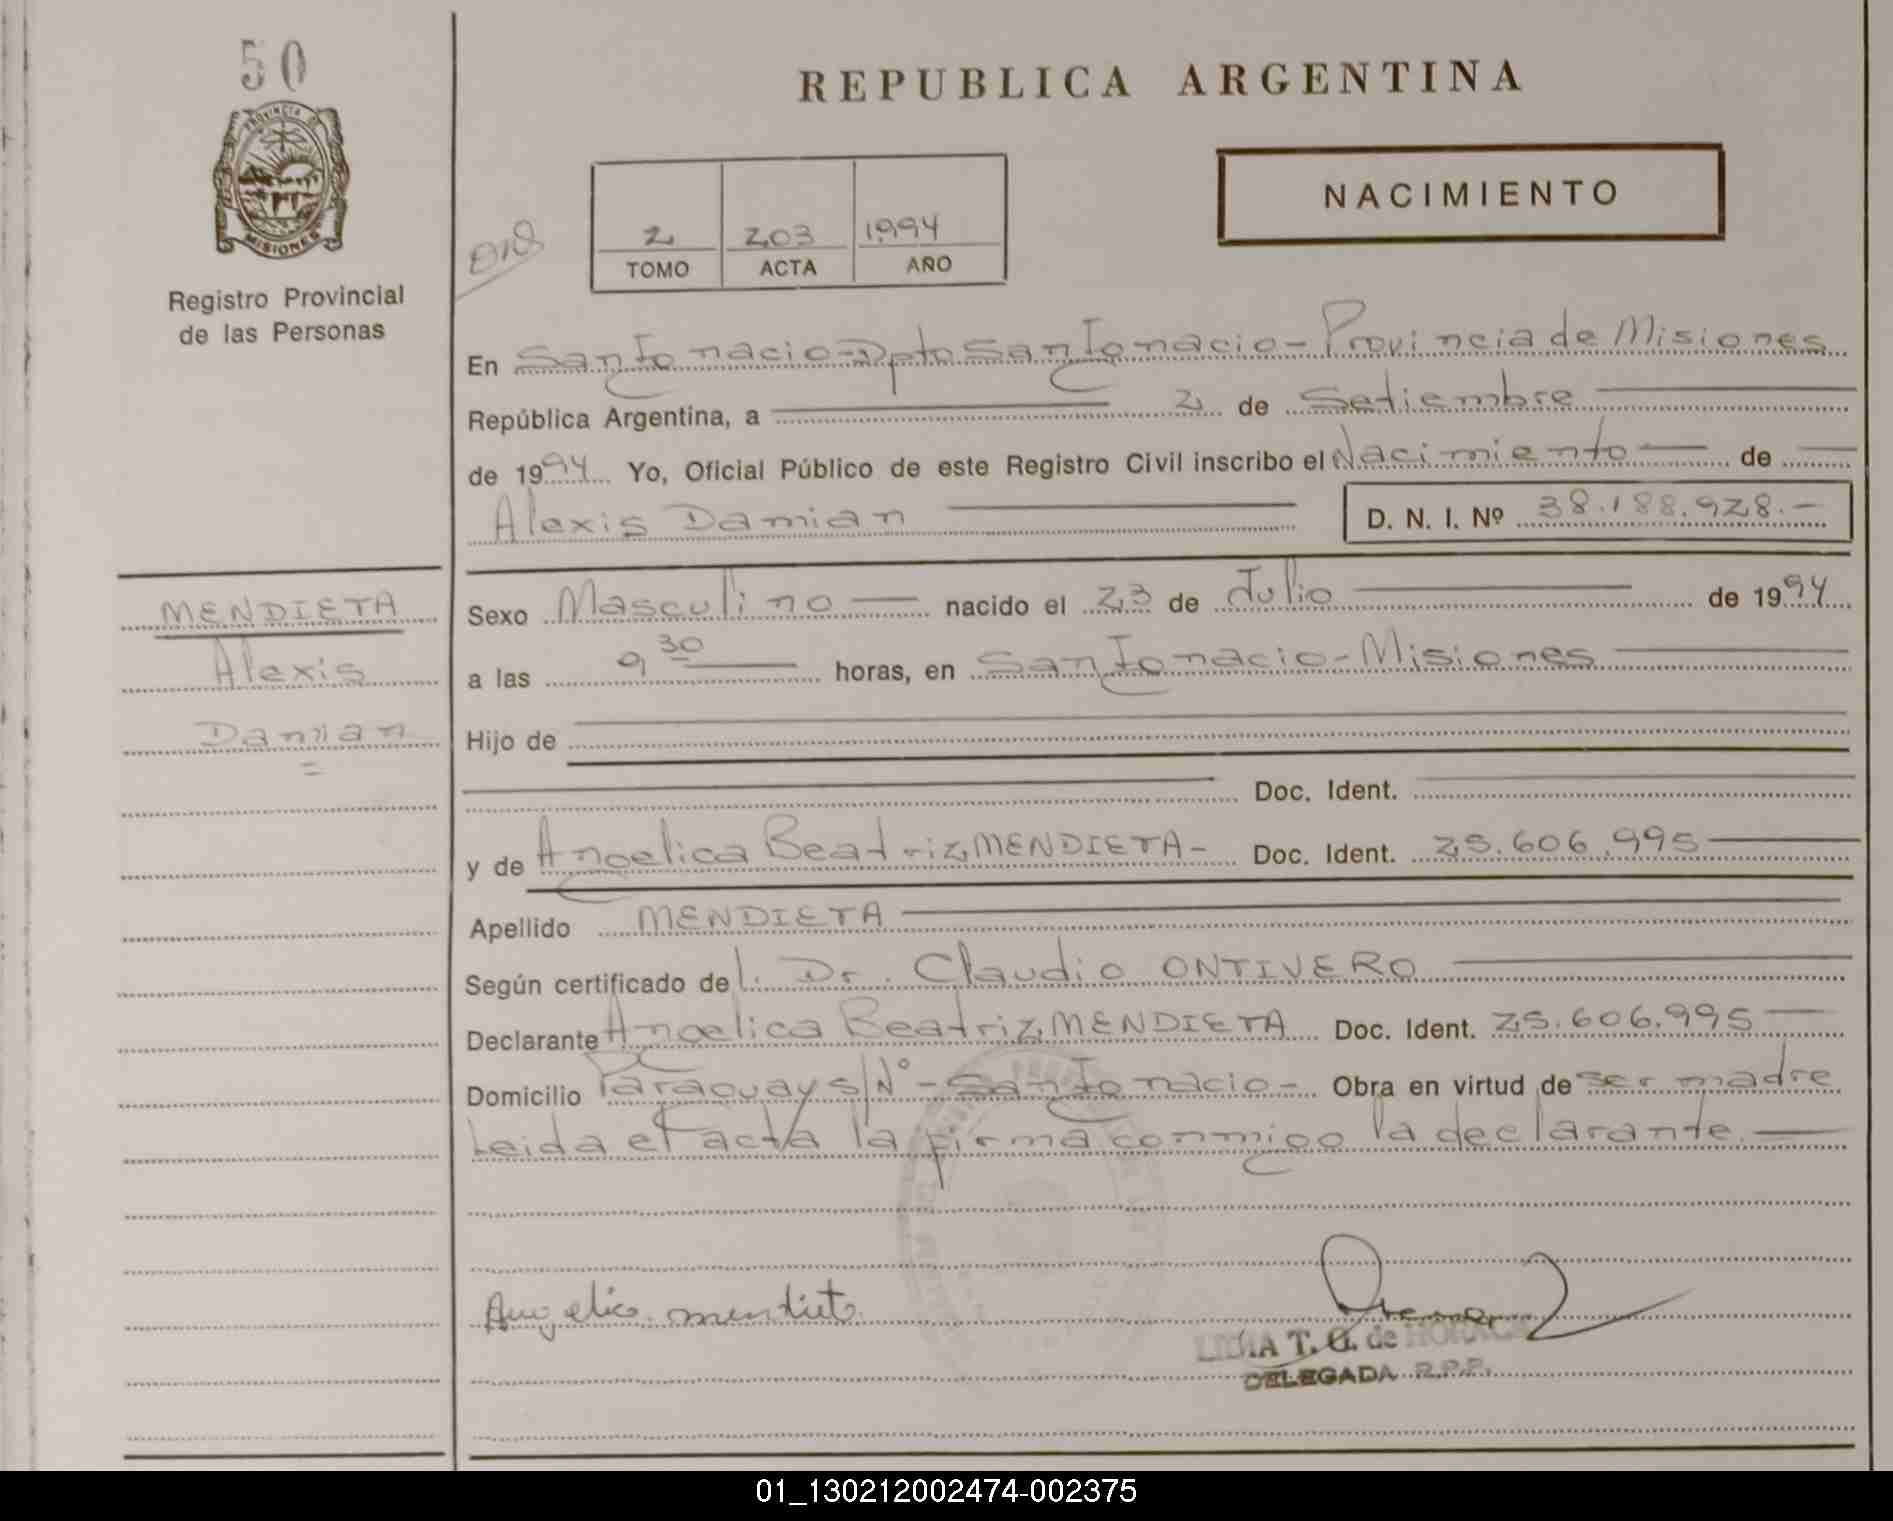 50
PROVINCIA DE
MISIONES
Registro Provincial
de las Personas
REPUBLICA ARGENTINA
NACIMIENTO
2 203 1994
TOMO ACTA AÑO
En San Ignacio - Dpto San Ignacio - Provincia de Misiones
República Argentina, a 2 de Setiembre
de 1994 Yo, Oficial Público de este Registro Civil inscribo el Nacimiento de
Alexis Damian D. N. I. Nº 38.188.928.-
MENDIETA
Alexis
Damian
Sexo Masculino nacido el 23 de Julio de 1994
a las 9 30 horas, en San Ignacio - Misiones
Hijo de
Doc. Ident.
y de Angelica Beatriz MENDIETA - Doc. Ident. 25.606.995
Apellido MENDIETA
Según certificado del. Dr. Claudio ONTIVERO
Declarante Angelica Beatriz MENDIETA Doc. Ident. 25.606.995
Domicilio Paraguay s/Nº - San Ignacio - Obra en virtud de ser madre
Leida el acta la firma conmigo la declarante.
Angelica mendieta
LIDIA T. G. de
DELEGADA R.P.P.
01_130212002474-002375